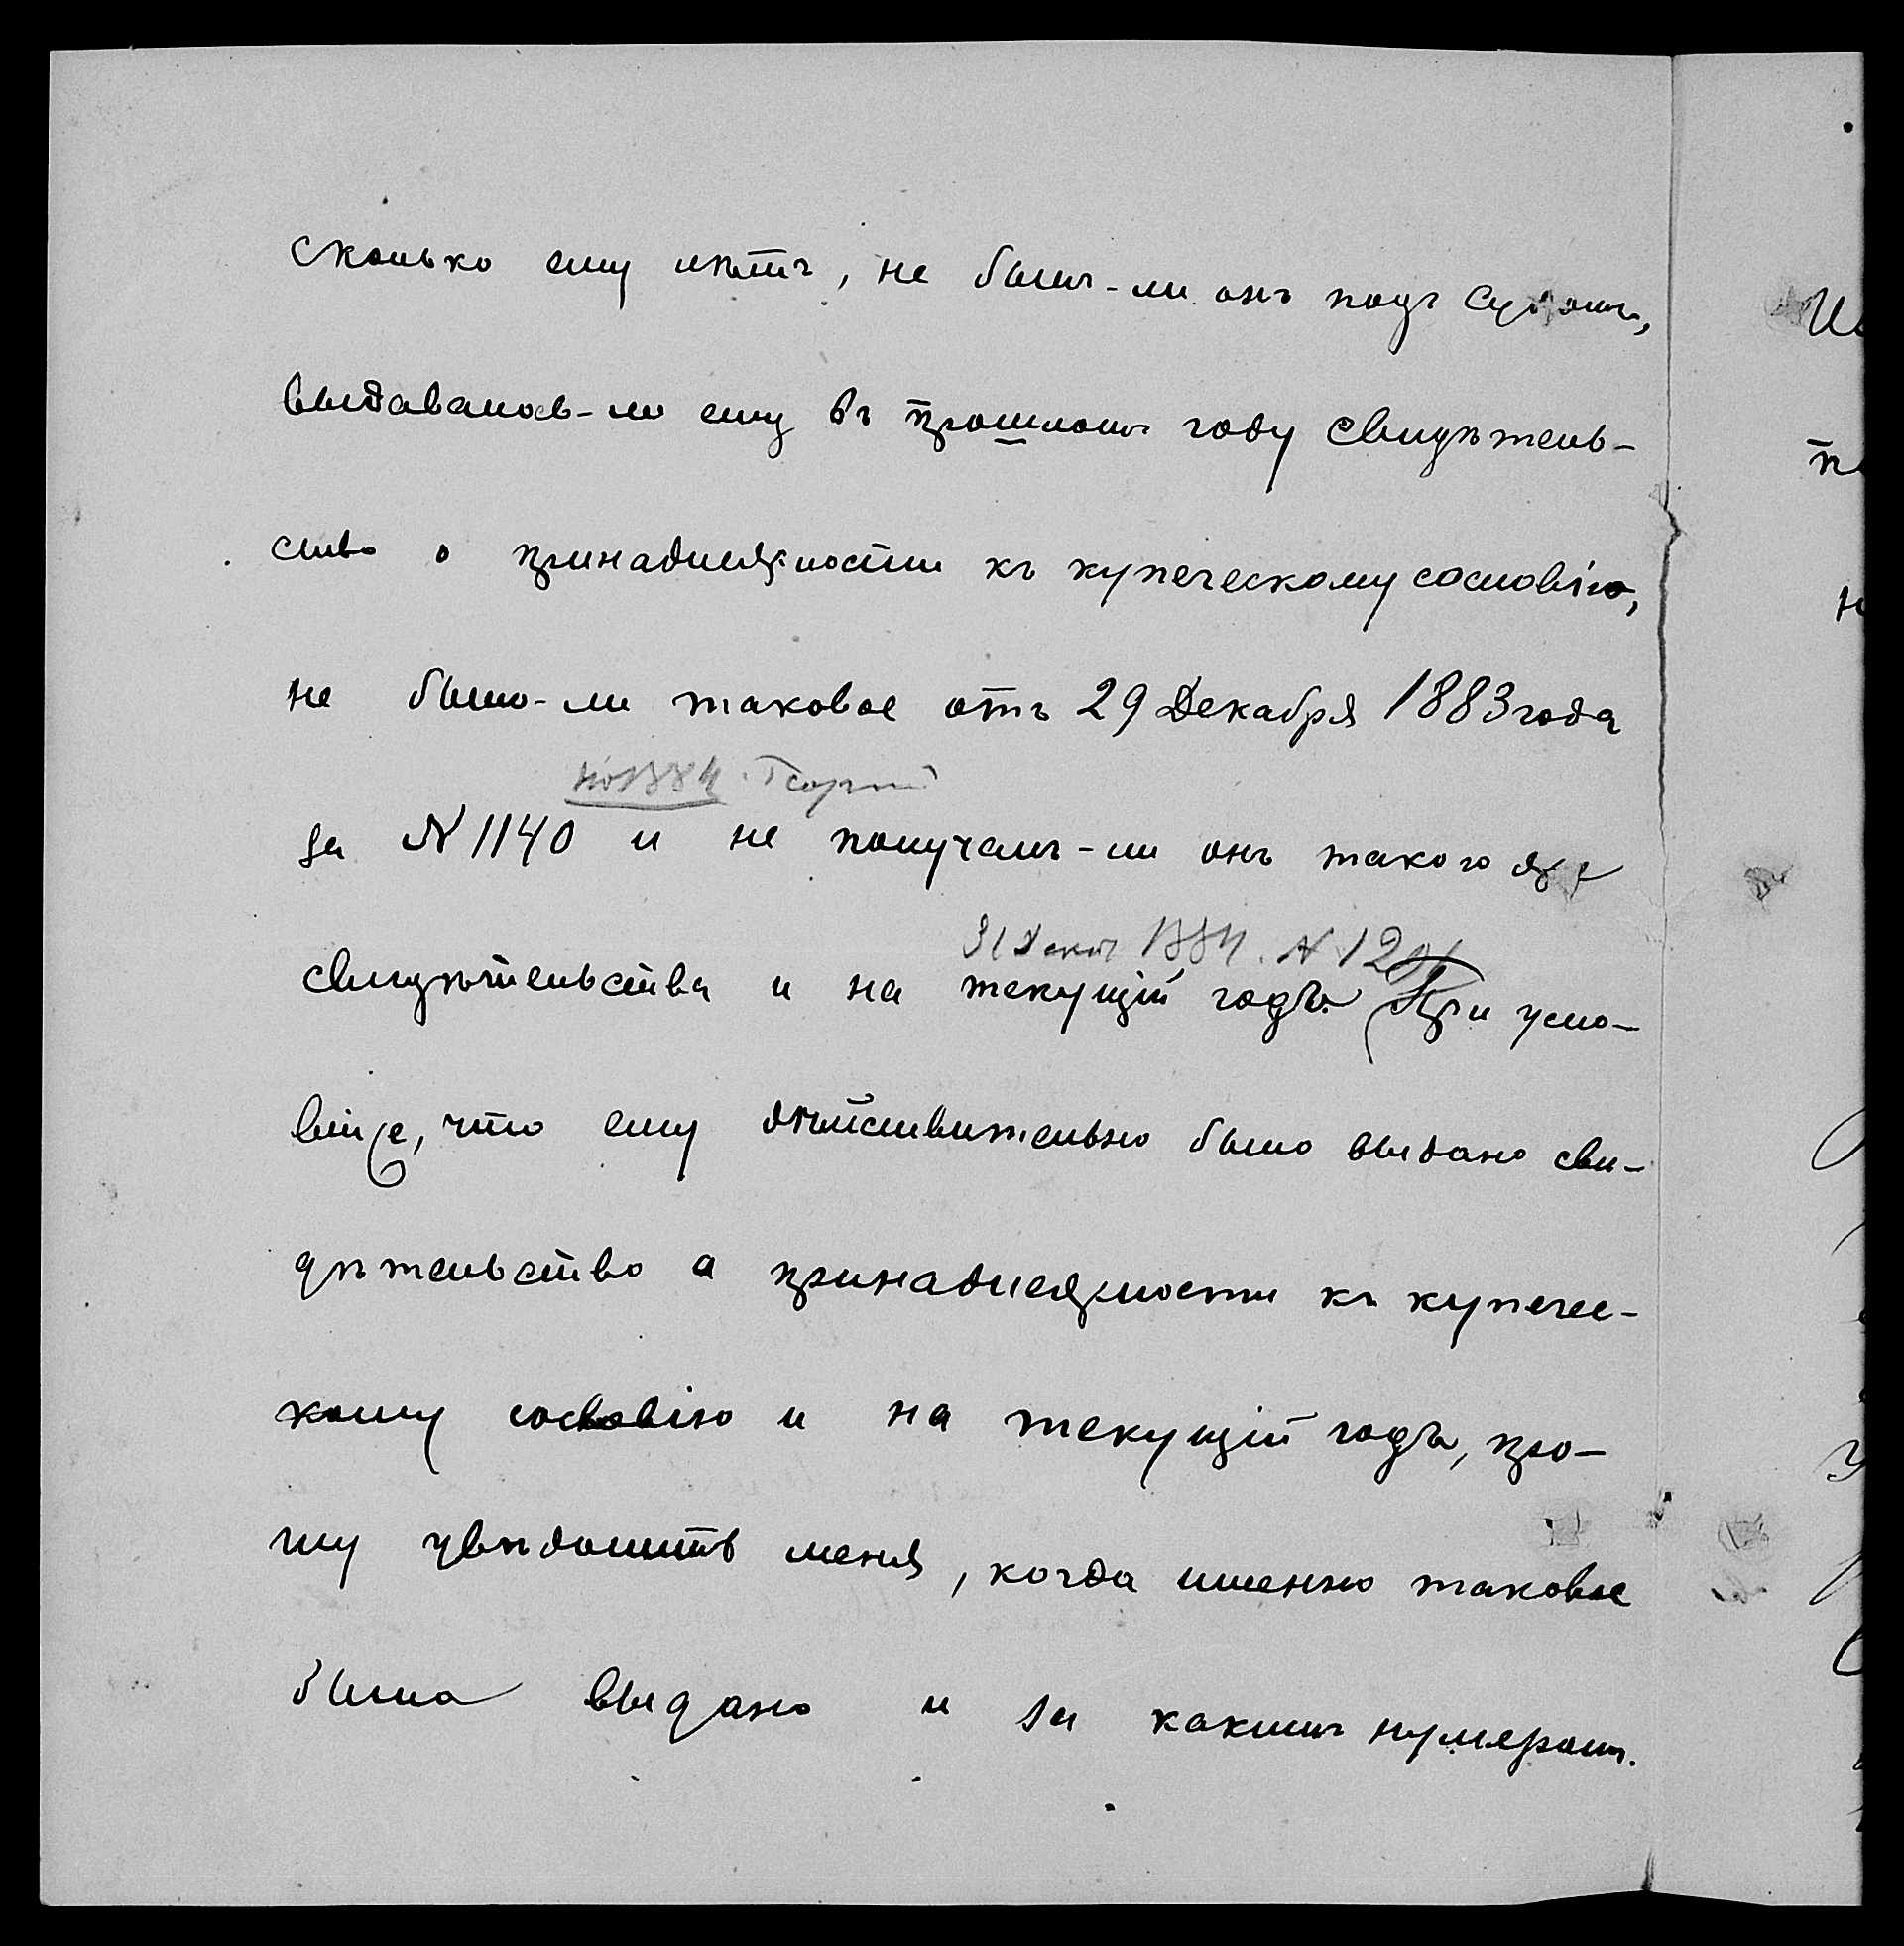 сколько ему лѣтъ, не былъ-ли онъ подъ судомъ,
выдавалось-ли ему въ прошломъ году свидѣтель-
ство о принадлежности къ купеческому сословію,
не было-ли таковое отъ 29 Декабря 1883 года
на 1884
за № 1140 и не получалъ-ли онъ такого же
31 Дек 1884. №
свидѣтельства и на текущій годъ. При усло-
віи, что ему дѣйствительно было выдано сви-
дѣтельство о принадлежности къ купечес-
кому сословію и на текущій годъ, про-
шу увѣдомить меня, когда именно таковое
было выдано и за какимъ нумеромъ.